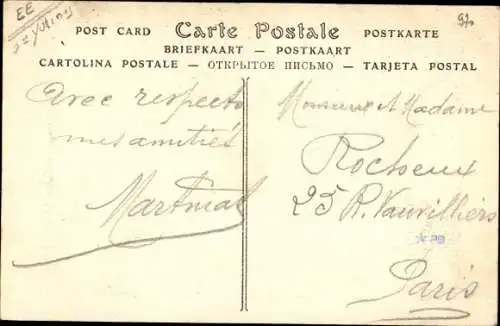 EE
97
POST CARD Carte Postale POSTKARTE
BRIEFKAART — POSTKAART
CARTOLINA POSTALE — ОТКРЫТОЕ ПИСЬМО — TARJETA POSTAL
Avec respects
mes amitiés
Martinat
Monsieur et Madame
25 R. Vauvilliers
Paris